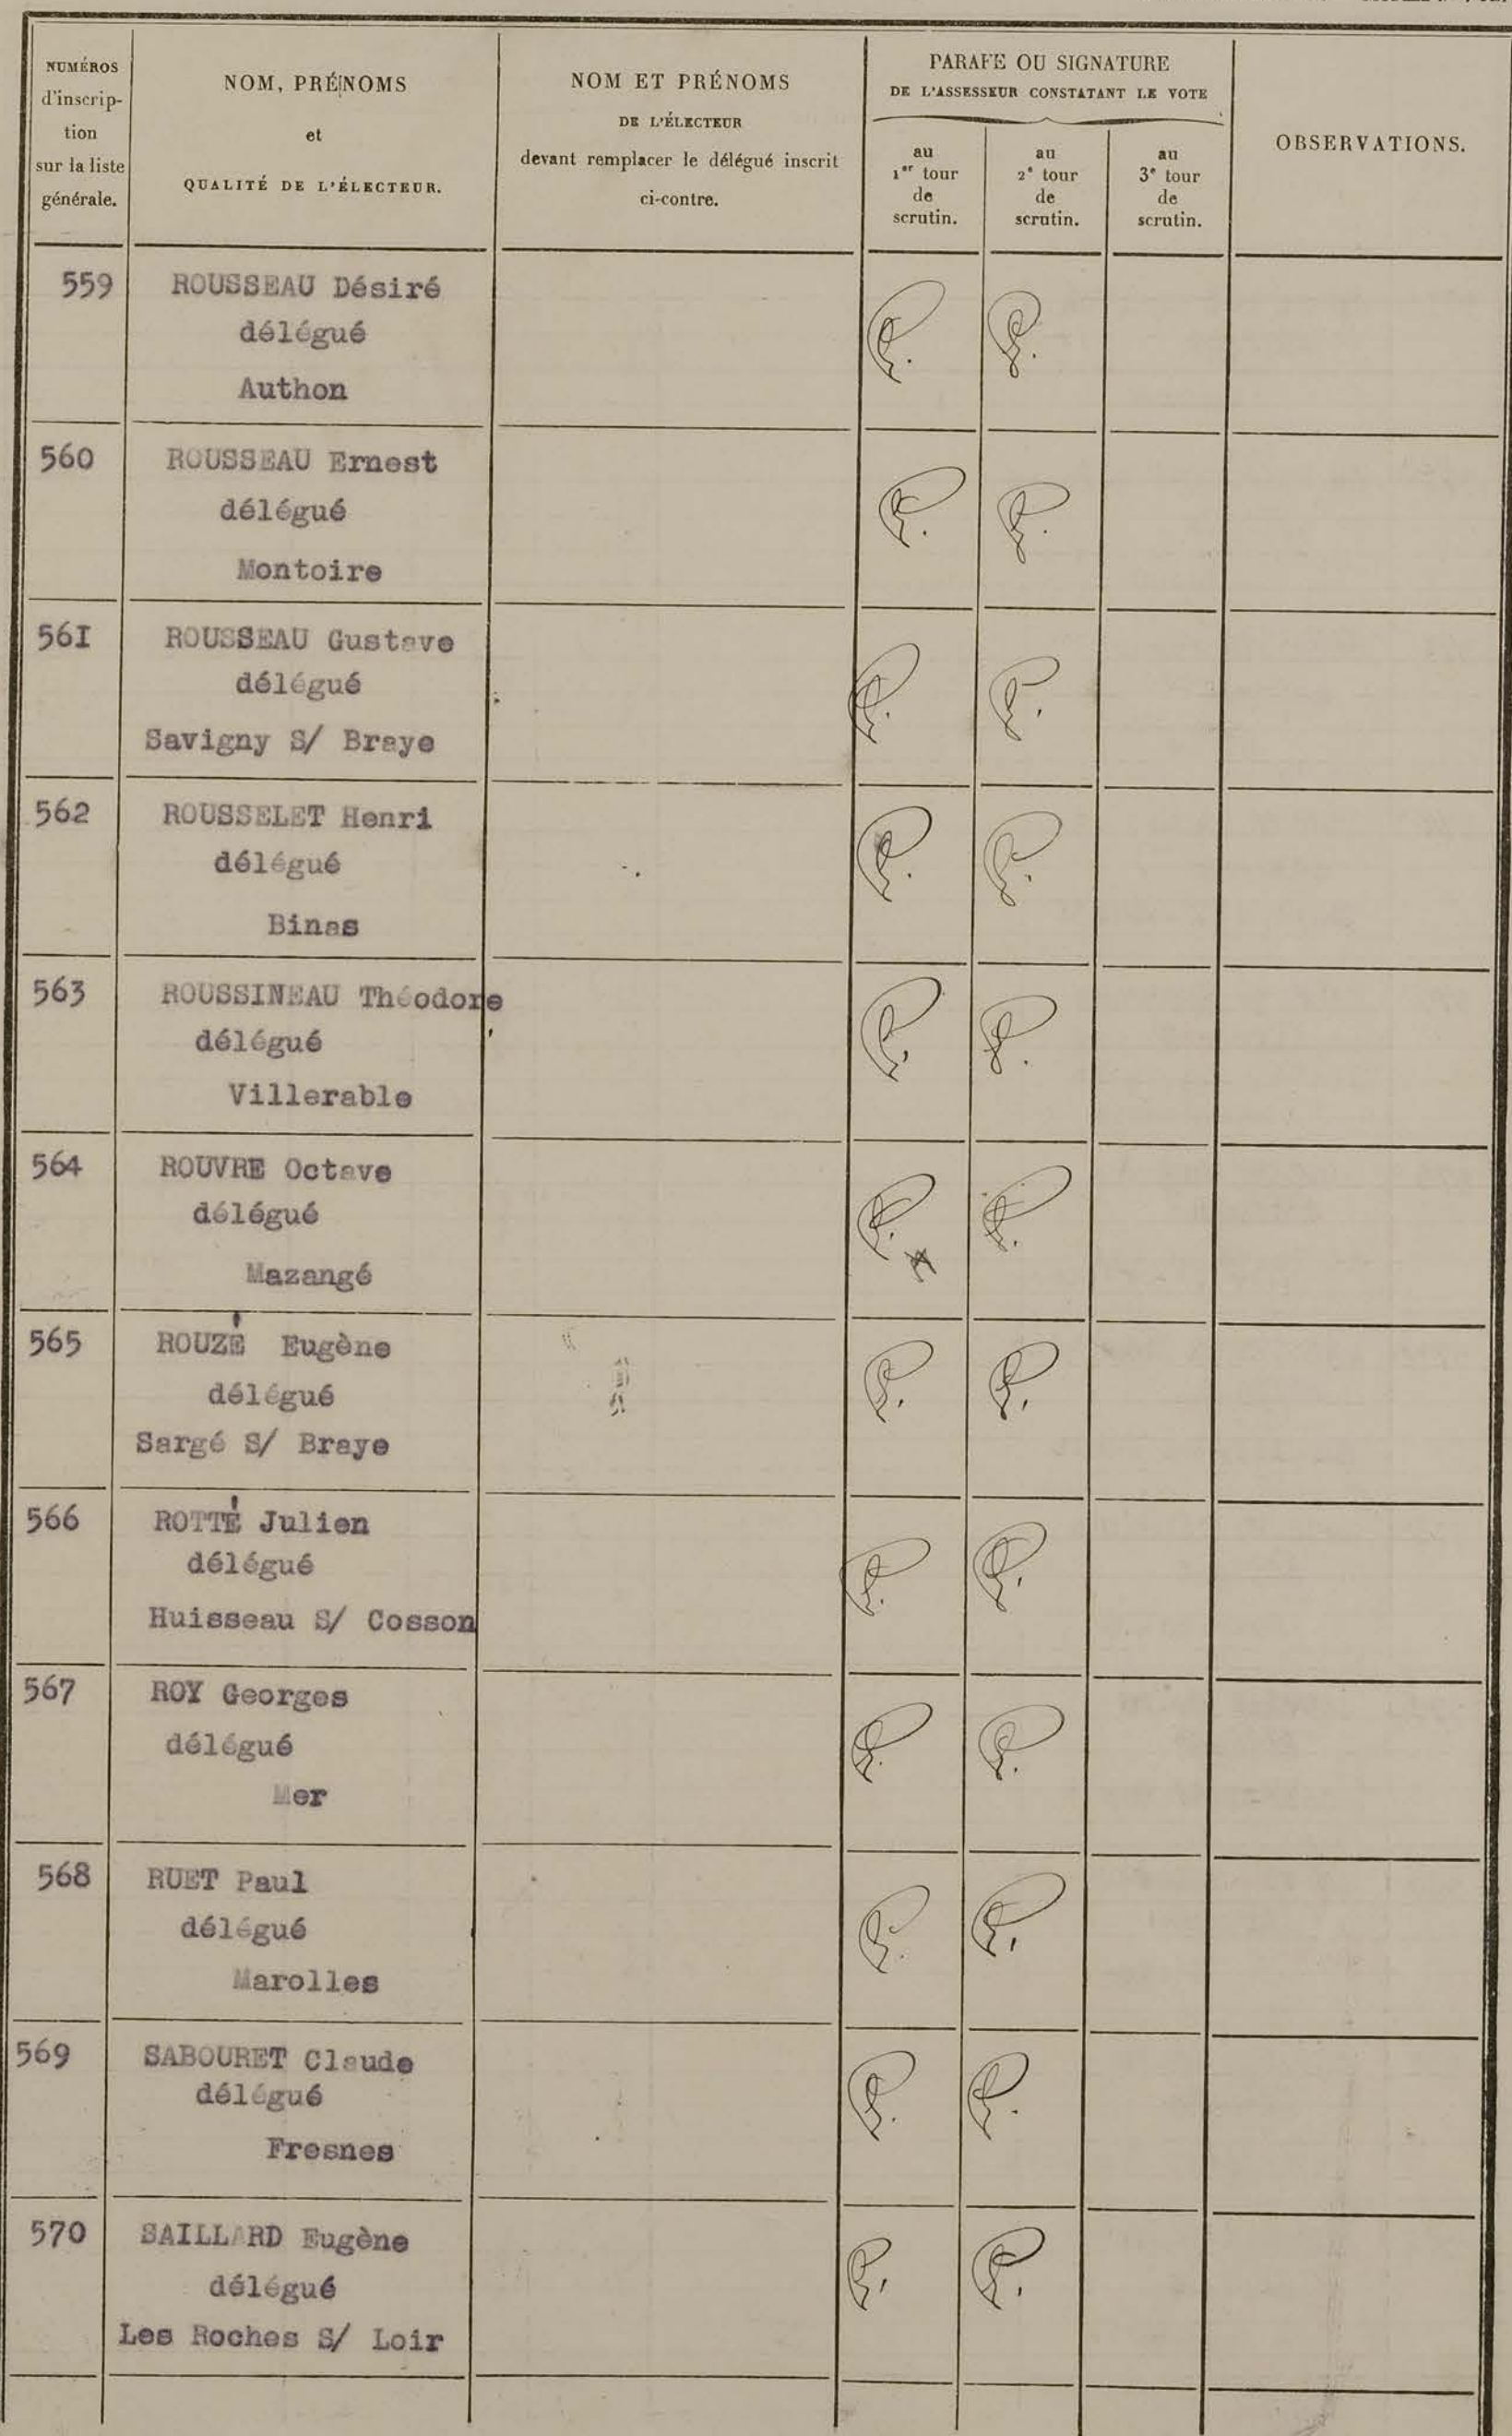 NUMÉROS
d'inscrip-
tion
sur la liste
générale.
NOM, PRÉNOMS
et
QUALITÉ DE L'ÉLECTEUR.
NOM ET PRÉNOMS
DE L'ÉLECTEUR
devant remplacer le délégué inscrit
ci-contre.
PARAFE OU SIGNATURE
DE L'ASSESSEUR CONSTATANT LE VOTE
au
1er tour
de
scrutin.
au
2e tour
de
scrutin.
au
3e tour
de
scrutin.
OBSERVATIONS.
559 ROUSSEAU Désiré
délégué
Authon
560 ROUSSEAU Ernest
délégué
Montoire
56I ROUSSEAU Gustave
délégué
Savigny S/ Braye
562 ROUSSELET Henri
délégué
Binas
563 ROUSSINEAU Théodore
délégué
Villerable
564 ROUVRE Octave
délégué
Mazangé
565 ROUZÉ Eugène
délégué
Sargé S/ Braye
566 ROTTÉ Julien
délégué
Huisseau S/ Cosson
567 ROY Georges
délégué
Mer
568 RUET Paul
délégué
Marolles
569 SABOURET Claude
délégué
Fresnes
570 SAILLARD Eugène
délégué
Les Roches S/ Loir